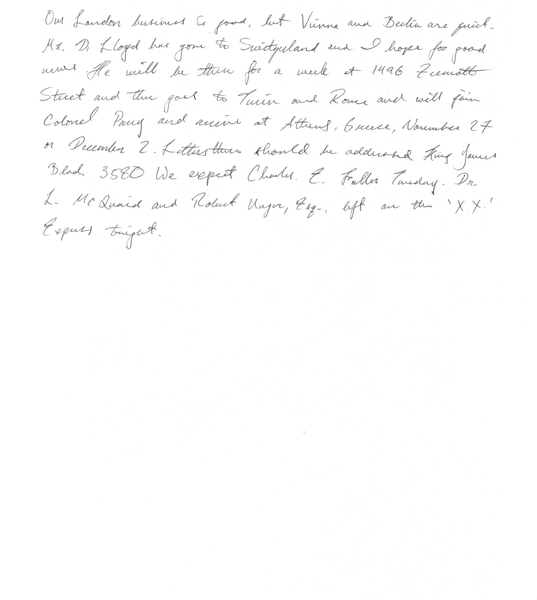 Our London business is good, but Vienna and Berlin are quiet.
Mr. D. Lloyd has gone to Switzerland and I hope for good
news. He will be there for a week at 1496 Zermott
Street and then goes to Turin and Rome and will join
Colonel Parry and arrive at Athens, Greece, November 27
or December 2. Letters there should be addressed King James
Blvd. 3580. We expect Charles E. Fuller Tuesday. Dr.
L. McQuaid and Robert Unger, Esq., left on the 'X X.'
Express tonight.